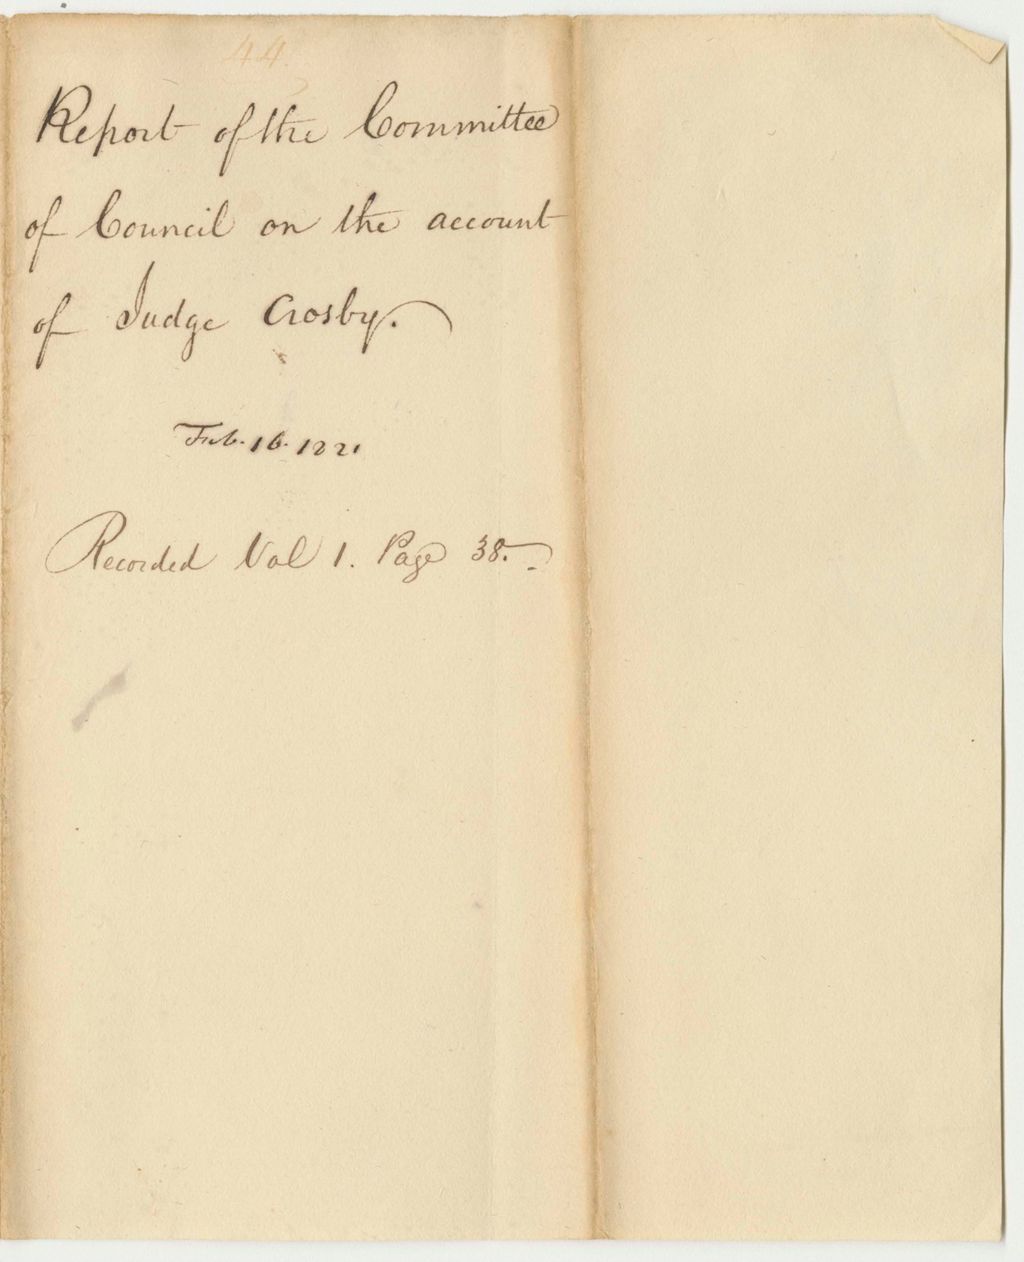 44.
Report of the Committee
of Council on the account
of Judge Crosby.
Feb. 16. 1821
Recorded Vol 1. Page 38.